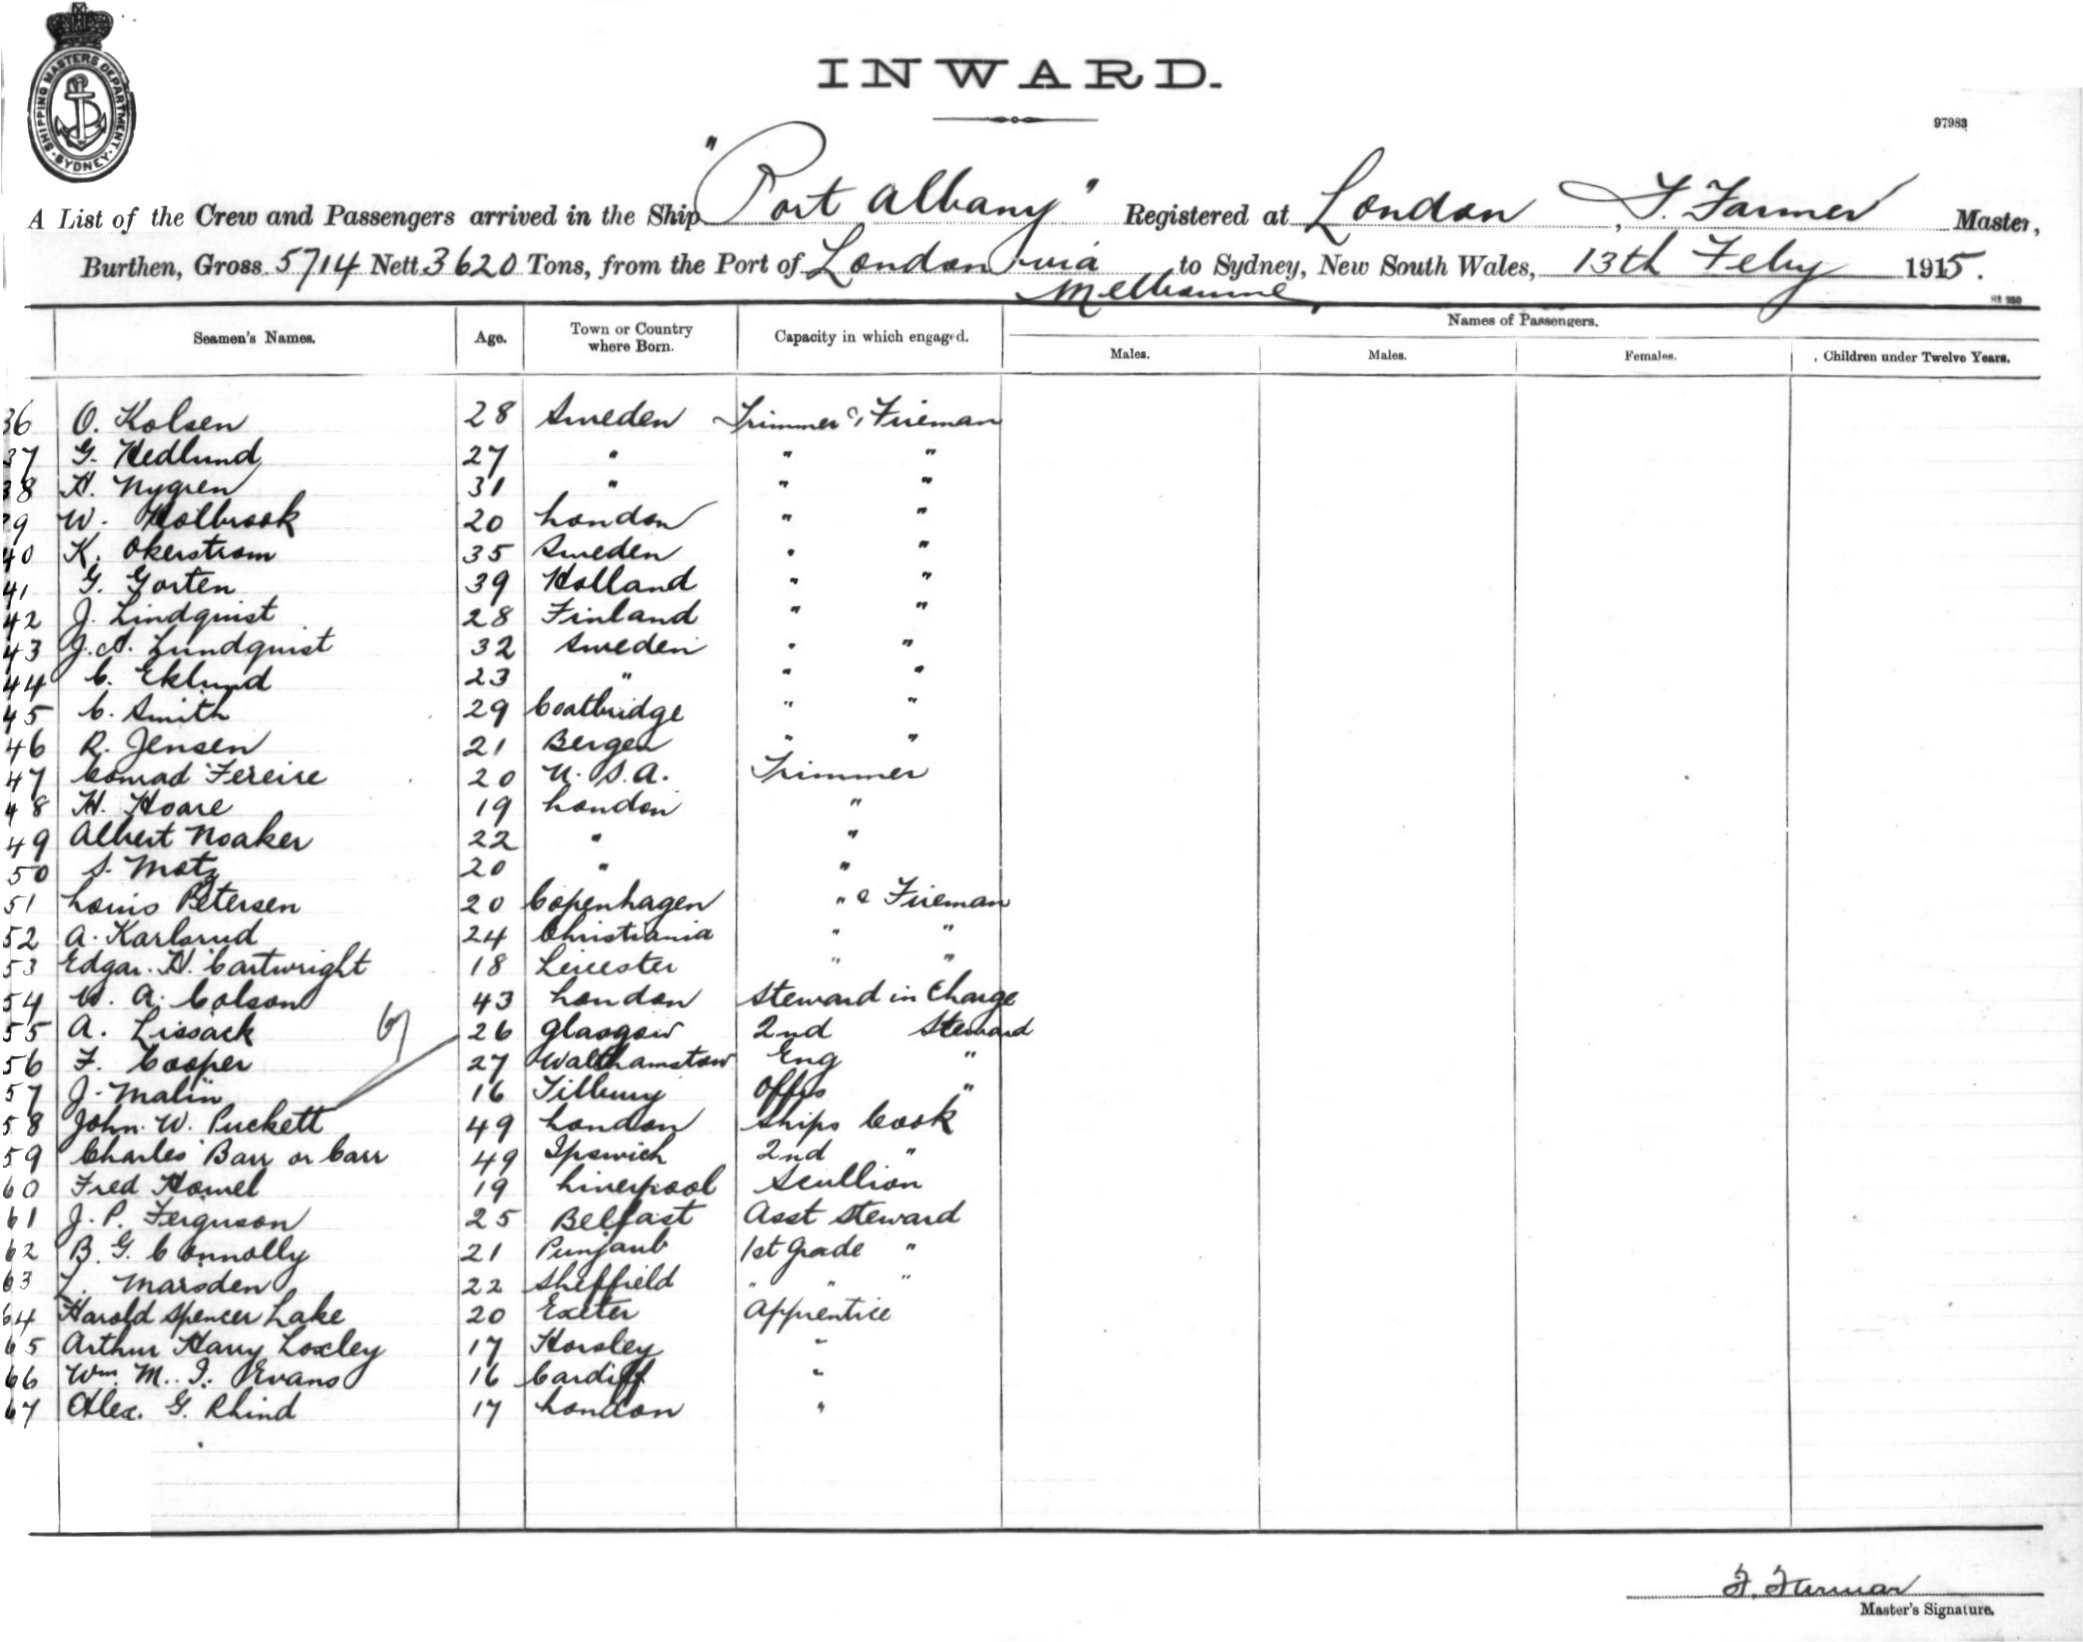 SHIPPING MASTERS DEPARTMENT · SYDNEY ·
INWARD.
97983
A List of the Crew and Passengers arrived in the Ship "Port Albany" Registered at London, F. Farmer Master,
Burthen, Gross 5714 Nett 3620 Tons, from the Port of London via Melbourne to Sydney, New South Wales, 13th Feby 1915.
Seamen's Names. Age. Town or Country where Born. Capacity in which engaged. Names of Passengers.
Males. Males. Females. Children under Twelve Years.
36 O. Kolsen 28 Sweden Trimmer & Fireman
37 G. Hedlund 27 " " "
38 H. Nygren 31 " " "
39 W. Holbrook 20 London " "
40 K. Okerstrom 35 Sweden " "
41 G. Gorten 39 Holland " "
42 J. Lindquist 28 Finland " "
43 J. A. Lundquist 32 Sweden " "
44 C. Eklund 23 " " "
45 C. Smith 29 Coatbridge " "
46 R. Jensen 21 Bergen " "
47 Conrad Fereire 20 U.S.A. Trimmer
48 H. Hoare 19 London "
49 Albert Noaker 22 " "
50 S. Motz 20 " "
51 Louis Petersen 20 Copenhagen " & Fireman
52 A. Karlsrud 24 Christiania " "
53 Edgar. H. Cartwright 18 Leicester " "
54 W. A. Colson 43 London Steward in Charge
55 A. Lissack 26 Glasgow 2nd Steward
56 F. Cooper 27 Walthamstow Eng "
57 J. Malin 16 Tilbury Offrs "
58 John. W. Puckett 49 London Ships Cook
59 Charles Barr or Carr 49 Ipswich 2nd "
60 Fred Howel 19 Liverpool Scullion
61 J. P. Ferguson 25 Belfast Asst Steward
62 B. G. Connolly 21 Punjaub 1st Grade "
63 L. Marsden 22 Sheffield " " "
64 Harold Spencer Lake 20 Exeter Apprentice
65 Arthur Harry Loxley 17 Horsley "
66 Wm. M. I. Evans 16 Cardiff "
67 Alex. G. Rhind 17 London "
F. Farmer
Master's Signature.